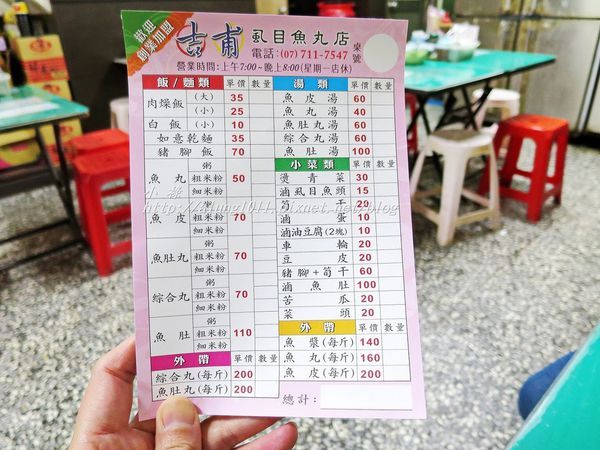 歡迎
創業加盟
吉甫 虱目魚丸店
電話:(07)711-7547
營業時間:上午7:00~晚上8:00(星期一店休)
桌號
飯/麵類 單價 數量
肉燥飯 (大) 35
(小) 25
白飯 (小) 10
如意乾麵 35
豬腳飯 70
魚丸 粥 粗米粉 細米粉 50
魚皮 粥 粗米粉 細米粉 70
魚肚丸 粥 粗米粉 細米粉 70
綜合丸 粥 粗米粉 細米粉 70
魚肚 粥 粗米粉 細米粉 110
外帶 單價 數量
綜合丸(每斤) 200
魚肚丸(每斤) 200
湯類 單價 數量
魚皮湯 60
魚丸湯 40
魚肚丸湯 60
綜合丸湯 60
魚肚湯 100
小菜類 單價 數量
燙青菜 30
滷虱目魚頭 15
筍干 20
滷蛋 10
滷油豆腐(2塊) 10
車輪 20
豆皮 20
豬腳+筍干 60
滷魚肚 100
苦瓜 20
菜頭 20
外帶 單價 數量
魚漿(每斤) 140
魚丸(每斤) 160
魚皮(每斤) 200
總計: